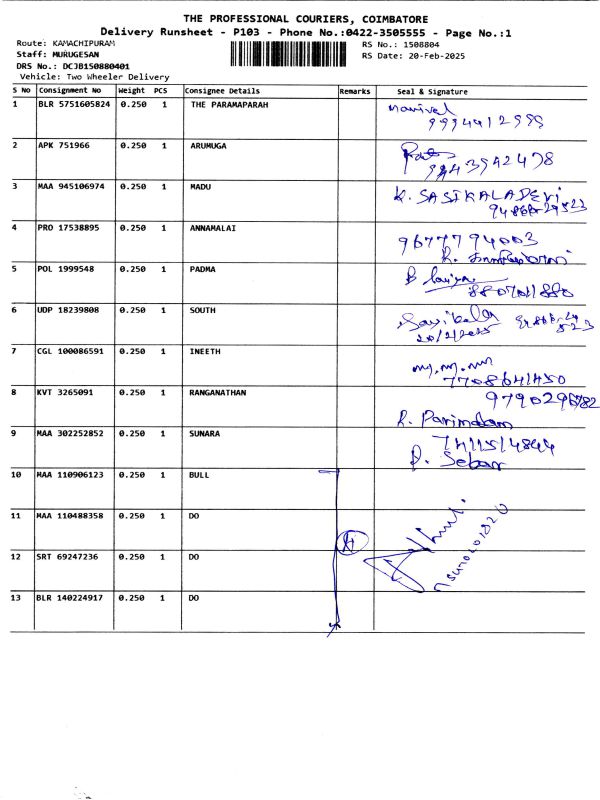 THE PROFESSIONAL COURIERS, COIMBATORE
Delivery Runsheet - P103 - Phone No.:0422-3505555 - Page No.:1
Route: KAMACHIPURAM
RS No.: 1508804
Staff: MURUGESAN
RS Date: 20-Feb-2025
DRS No.: DCJB150880401
Vehicle: Two Wheeler Delivery
S No Consignment No Weight PCS Consignee Details Remarks Seal & Signature
1 BLR 5751605824 0.250 1 THE PARAMAPARAH
2 APK 751966 0.250 1 ARUMUGA
3 MAA 945106974 0.250 1 MADU K. SASIKALADEVI
4 PRO 17538895 0.250 1 ANNAMALAI 9677794003
5 POL 1999548 0.250 1 PADMA
6 UDP 18239808 0.250 1 SOUTH
20/2/2025
7 CGL 100086591 0.250 1 INEETH
7708641450
8 KVT 3265091 0.250 1 RANGANATHAN 9790296782
9 MAA 302252852 0.250 1 SUNARA
10 MAA 110906123 0.250 1 BULL
11 MAA 110488358 0.250 1 DO
4
12 SRT 69247236 0.250 1 DO
13 BLR 140224917 0.250 1 DO